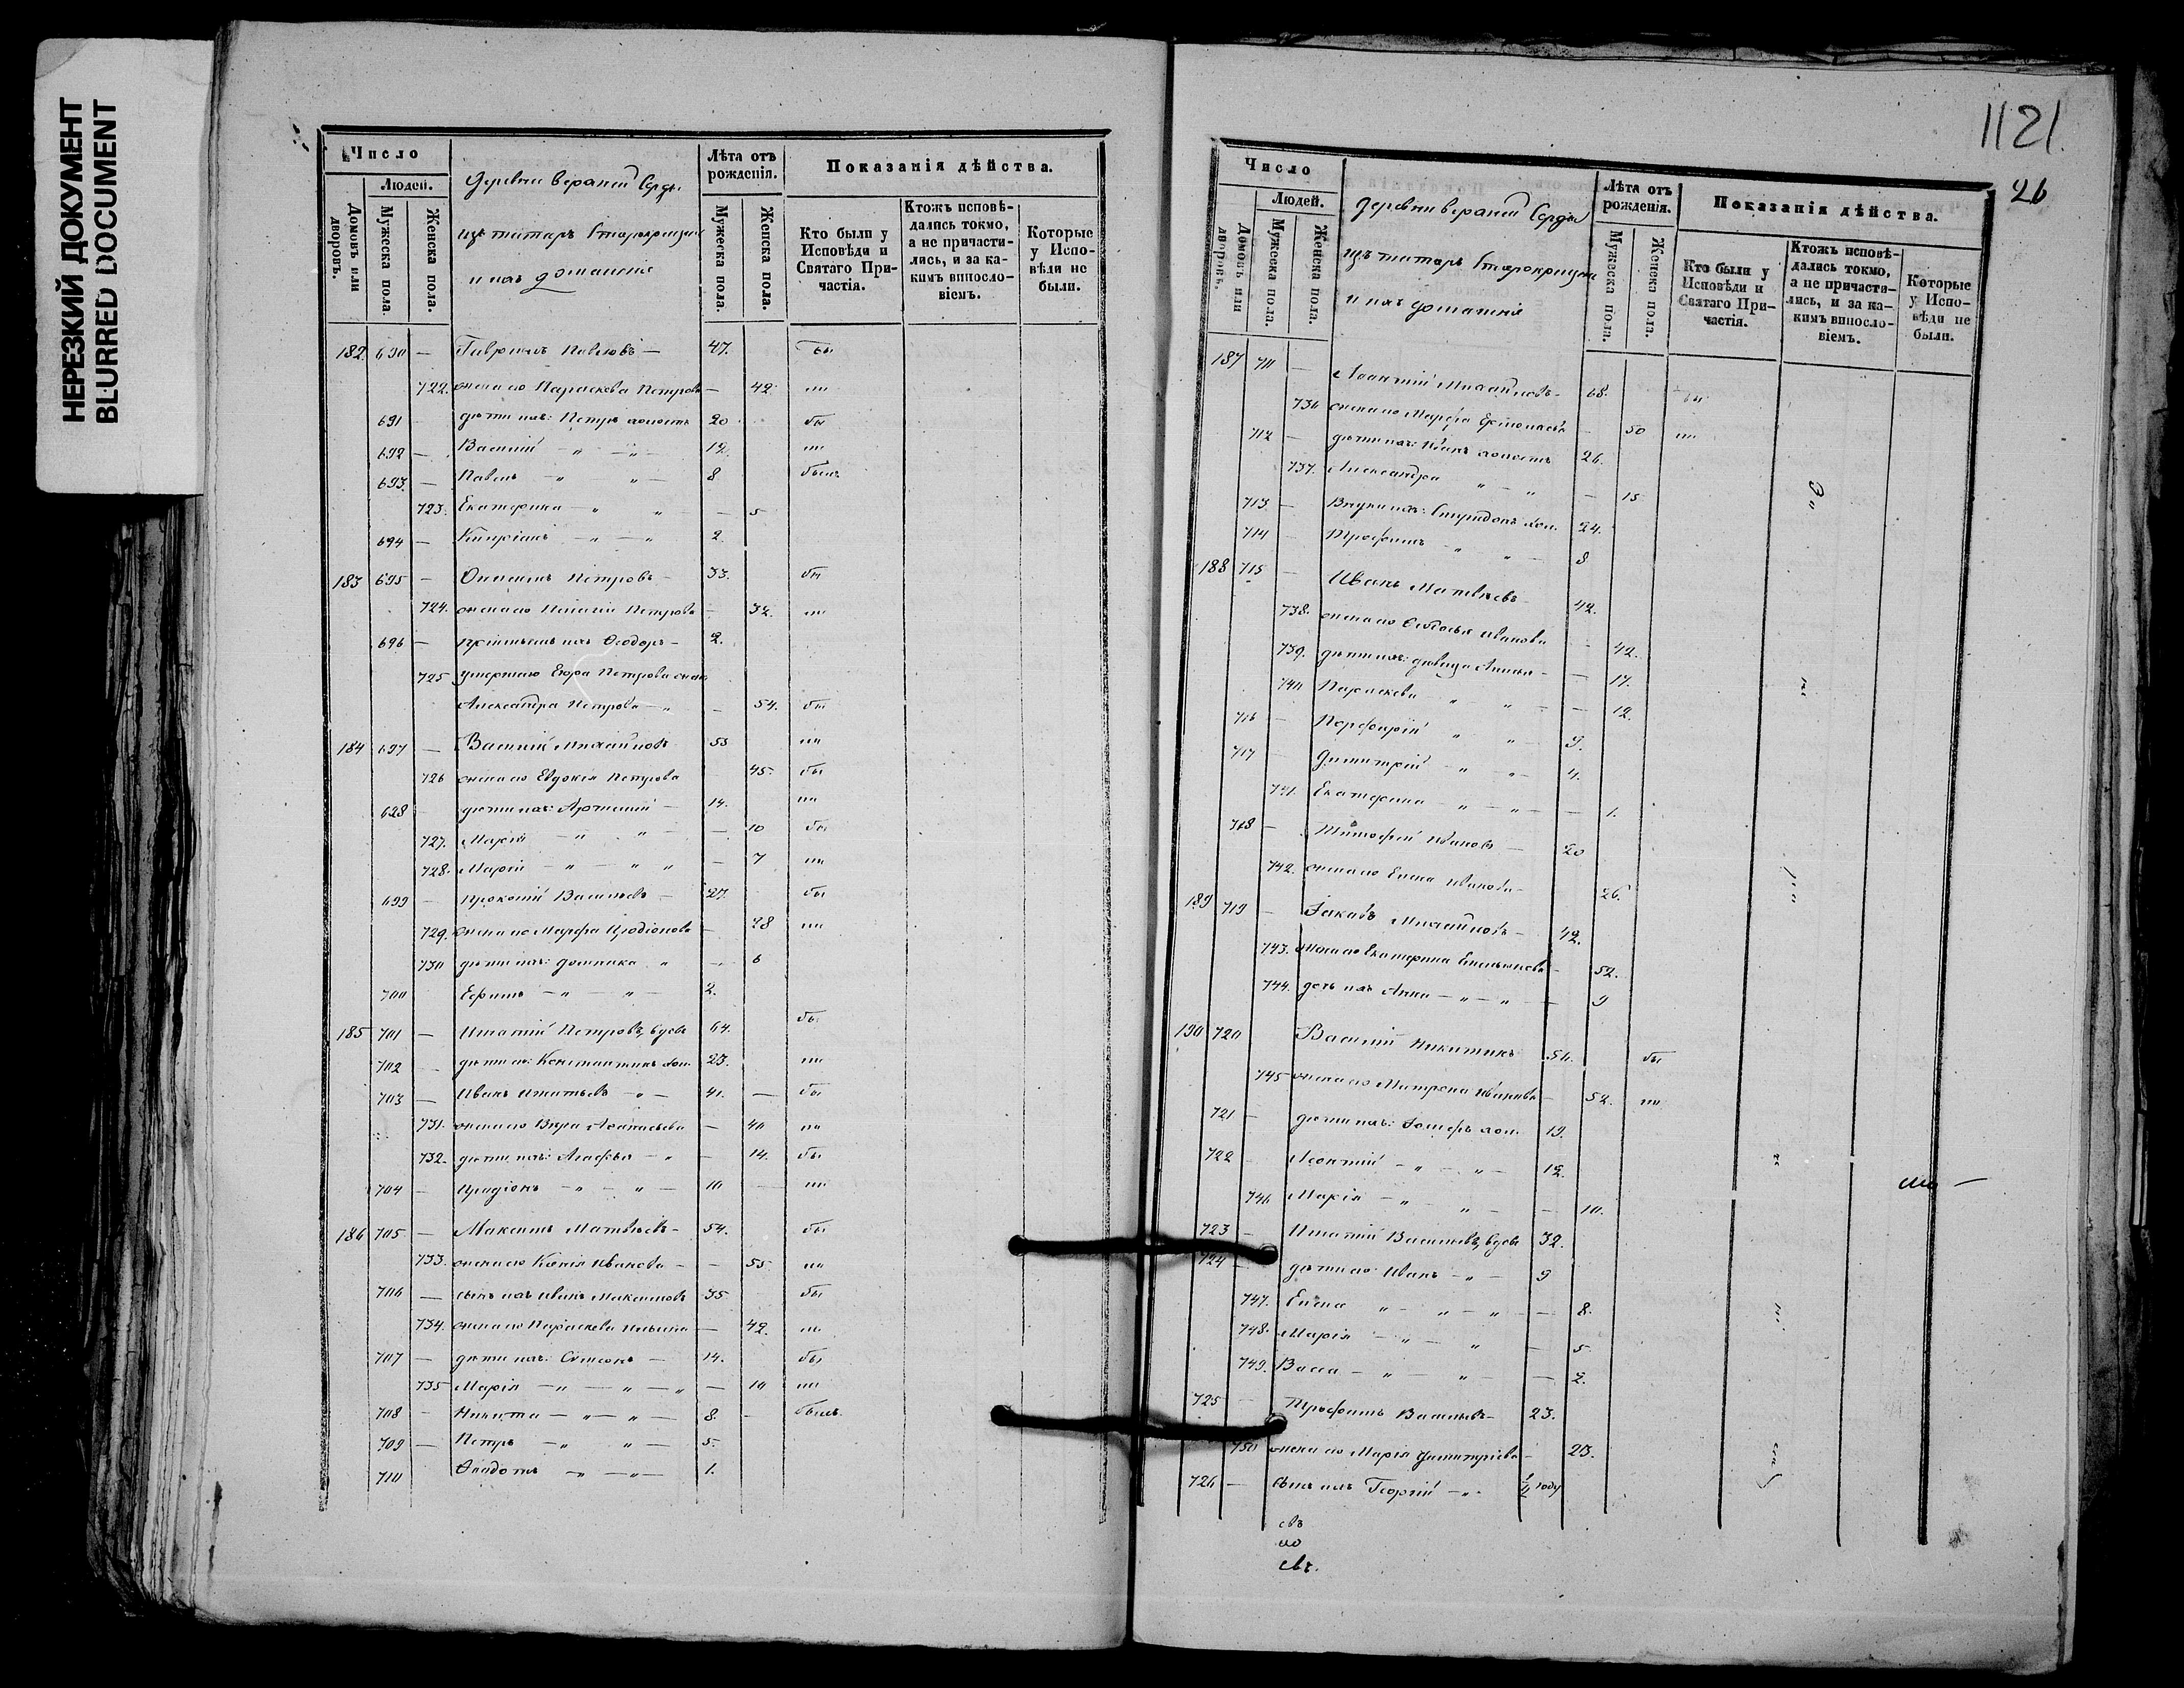 НЕРЕЗКИЙ ДОКУМЕНТ
BLURRED DOCUMENT
Число
Людей.
Домовъ или дворовъ.
Мужеска пола.
Женска пола.
Деревни верхней Серды
изъ татаръ Старокрещен
и ихъ домашнія
Лѣта отъ рожденія.
Мужеска пола.
Женска пола.
Показанія дѣйства.
Кто были у Исповѣди и Святаго Причастія.
Ктожъ исповѣдались токмо, а не причастились, и за какимъ винословіемъ.
Которые у Исповѣди не были.
182 690 — Гавріилъ Павловъ — 47. бы
722. жена его Параскева Петрова — 42. ли
691 — дѣти ихъ: Петръ холостъ 20 бы
692 — Василій — " — " — 12. ли
693. — Павелъ — " — " — 8 былъ
723. Екатерина — " " — 5
694 — Кипріанъ — " — " 2
183 695 — Петровъ — 33. бы
724. жена его Пелагія Петрова — 32. ли
696 — ихъ Ѳеодоръ — 2.
725 умершаго Петрова жена
Александра Петрова — " — 54. бы
184 697 — Василій Михайловъ 55 ли
726 жена его Евдокія Петрова 45. бы
698 — дѣти ихъ: Артемій — 14. ли
727. Марія — " " — — 10 бы
728. Марія — " — " " — 7 ли
699 — Прокопій Васильевъ — 27. бы
729. жена его Марѳа Иродіонова — 28 ли
730 дѣти ихъ: Домника " — 6
700 Ефимъ — " — " — 2.
185 701 — Игнатій Петровъ, вдовъ 64. бы
702 — дѣти его: Константинъ хол. 23. ли
703 — Иванъ Игнатьевъ — " — 41. — бы
731. жена его Вѣра Аѳанасьева — 40 ли
732. дѣти ихъ: Агафья — " — 14. бы
704 — Иродіонъ — " — " — 10 — ли
186 705 — Максимъ Матвѣевъ — 54. бы
733. жена его Ксенія Иванова — — 55 ли
706 — сынъ ихъ Иванъ Максимовъ 35 бы
734. жена его Параскева — 42. ли
707 — дѣти ихъ: Симеонъ — 14. бы
735 Марія — " — " — " — 10 ли
708 — Никита — " — " — 8. — былъ
709 — Петръ — " " — 5.
710 Ѳеодотъ — " — " — 1.
1121.
26
Число
Людей.
Домовъ или дворовъ.
Мужеска пола.
Женска пола.
Деревни верхней Серды
изъ татаръ Старокрещен
и ихъ домашнія
Лѣта отъ рожденія.
Мужеска пола.
Женска пола.
Показанія дѣйства.
Кто были у Исповѣди и Святаго Причастія.
Ктожъ исповѣдались токмо, а не причастились, и за какимъ винословіемъ.
Которые у Исповѣди не были.
187 711 — Михайловъ — 68. бы
736 жена его Марѳа — 50 ли
712 — дѣти ихъ: холостъ 26.
737. Александра " — " — 15
713 — Внуки ихъ: Спиридонъ хол. 24.
714 — Трофимъ " " — 8
188 715 — Иванъ Матвѣевъ 42.
738. жена его Ѳеодосья Иванова — 42.
739. дѣти ихъ: дѣвица — — 17.
740 Параскева " " — — 12.
716 — Порфирій " " — 9.
717 — Димитрій — " — " — 4.
741. Екатерина — " — " — — 1.
718 — Тимофей Ивановъ — 20
742. жена его Елена Иванова — 26.
189 719 — Іаковъ Михайловъ — 42.
743. жена его Екатерина Емельянова — 52.
744. дочь ихъ Анна — " — " — — 9
190 720 Василій Никитинъ 54. бы
745 жена его Матрона Иванова — 52. ли
721 — дѣти ихъ: Іосифъ хол. 19.
722 Леонтій — " — " — 12.
746 Марія — " — " — — 10.
723 — Игнатій Васильевъ, вдовъ 32.
724 — дѣти его: Иванъ — " — 9
747. Елена " — " — " — 8.
748. Марія — " — " — 5
749. Васса — " — " — — 2.
725 — Трофимъ Васильевъ — 23.
750 жена его Марія Димитріева — 23.
726 — сынъ ихъ Георгій — " — ½ году